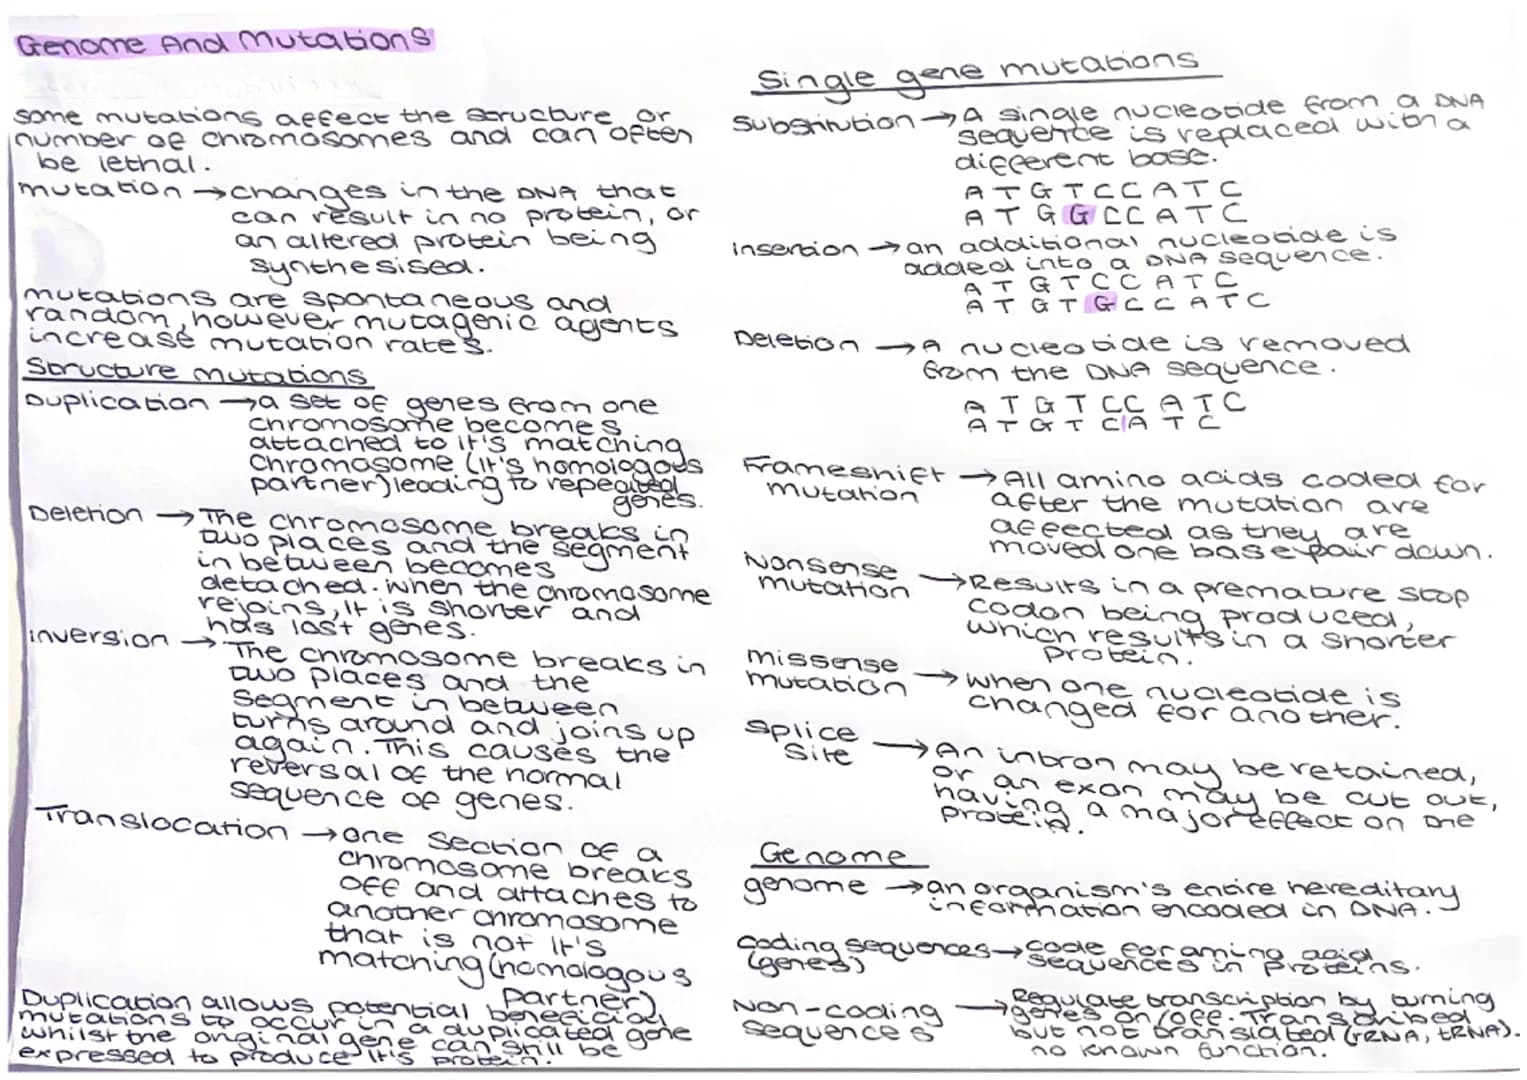 Genome And Mutations
some mutations affect the structure or
number of chromosomes and can often
be lethal.
mutation → changes in the DNA that
can result in no protein, or
an altered protein being
synthesised.
mutations are spontaneous and
random, however mutagenic agents
increase mutation rates.
Structure mutations
Duplication → a set of genes from one
chromosome becomes
attached to it's matching
chromosome (it's homologous
partner) leading to repeated
genes.
Deletion → The chromosome breaks in
two places and the segment
in between becomes
detached. When the chromosome
rejoins, it is shorter and
has lost genes.
inversion → The chromosome breaks in
two places and the
segment in between
turns around and joins up
again. This causes the
reversal of the normal
sequence of genes.
Translocation → one section of a
chromosome breaks
off and attaches to
another chromosome
that is not it's
matching (homologous
partner)
Duplication allows potential beneficial
mutations to occur in a duplicated gene
whilst the original gene can still be
expressed to produce it's protein.
Single gene mutations
Substitution → A single nucleotide from a DNA
sequence is replaced with a
different base.
A T G T C C A T C
A T G G C C A T C
insertion → an additional nucleotide is
added into a DNA sequence.
A T G T C C A T C
A T G T G C C A T C
Deletion → A nucleotide is removed
from the DNA sequence.
A T G T C C A T C
A T G T C A T C
Frameshift → All amino acids coded for
mutation after the mutation are
affected as they are
moved one base pair down.
Nonsense
mutation → Results in a premature stop
codon being produced,
which results in a shorter
protein.
missense
mutation → when one nucleotide is
changed for another.
Splice
Site → An intron may be retained,
or an exon may be cut out,
having a major effect on the
protein.
Genome
genome → an organism's entire hereditary
information encoded in DNA.
coding sequences → code for amino acid
(genes) sequences in proteins.
Non-coding → Regulate transcription by turning
sequences genes on/off. Transcribed
but not translated (rRNA, tRNA).
no known function.